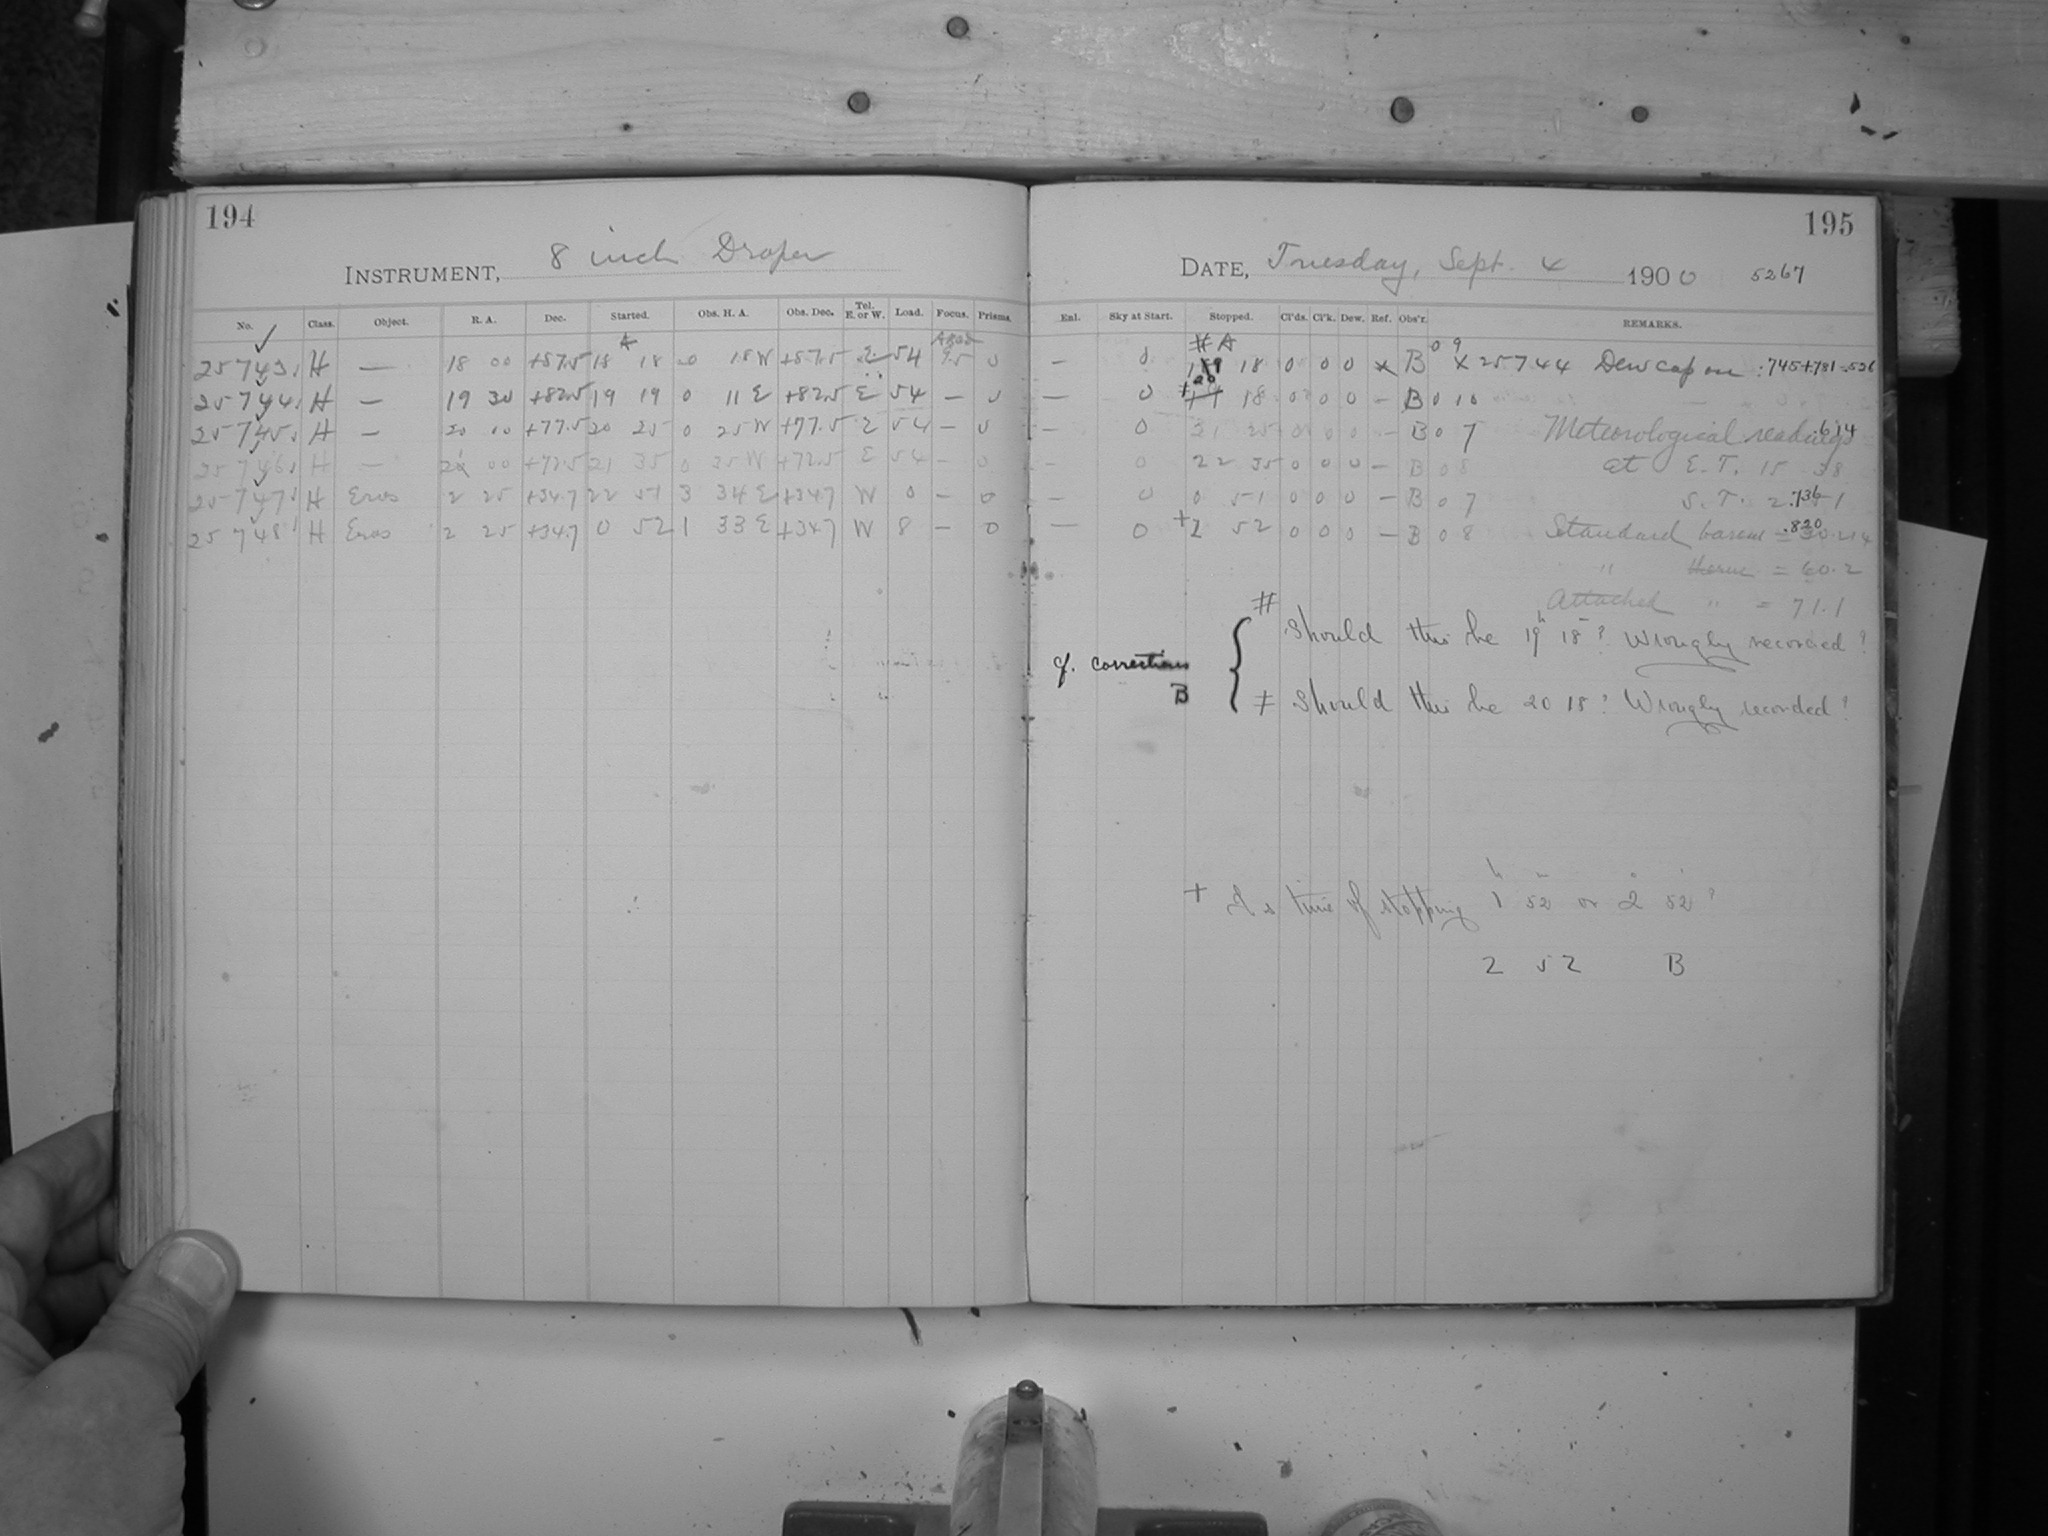 194
INSTRUMENT, 8 inch Draper
No. Class. Object. R. A. Dec. Started. Obs. H. A. Obs. Dec. Tel. E. or W. Load. Focus. Prisms.
25743 H — 18 00 +87.5 18 18 0 18 W +87.5 E 54 9.5 0
25744 H — 19 30 +82.5 19 19 0 11 E +82.5 E 54 — 0
25745 H — 20 00 +77.5 20 25 0 25 W +77.5 E 54 — 0
25746 H — 00 +72.5 21 35 0 35 W +72.5 E 54 — 0
25747 H Eros 2 25 +34.7 22 51 3 34 E +34.7 W 0 — 0
25748 H Eros 2 25 +34.7 0 52 1 33 E +34.7 W 8 — 0
195
DATE, Tuesday, Sept. 4 1900 5267
Enl. Sky at Start. Stopped. Cl'ds. Cl'k. Dew. Ref. Obs'r. REMARKS.
# A
— 0 19 18 0 0 0 x B 0 9 x 25744 Dew cap on
— 0 20 18 0 0 0 — B 0 10
— 0 21 25 0 0 0 — B 0 7 Meteorological readings .614
— 0 22 35 0 0 0 — B 0 8 at E. T. 15 38
— 0 0 51 0 0 0 — B 0 7 S. T. 2 .736
— 0 + 2 52 0 0 0 — B 0 8 Standard barom = 30.214 .820
" therm = 60.2
Attached " = 71.1
# Should this be 19h 18m? Wrongly recorded?
cf. corrections
B
‡ Should this be 20 18? Wrongly recorded?
+ Is time of stopping 1h 52m or 2 52?
2 52 B